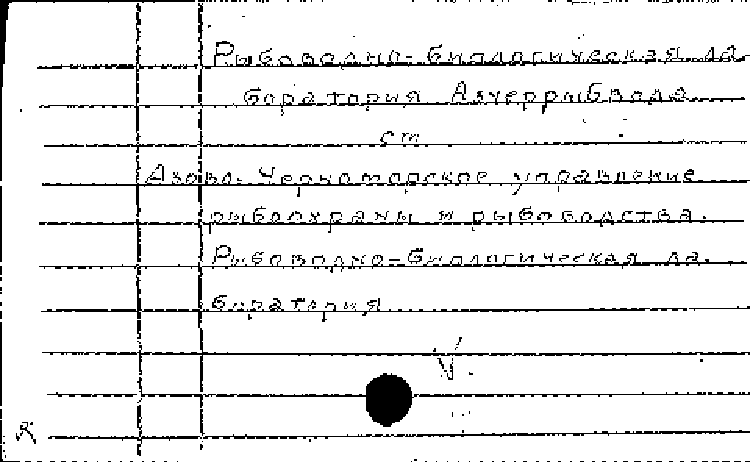 Рыбоводно-биологическая ла-
боратория Азчеррыбвода
см
Азово-Черноморское управление
рыбоохраны и рыбоводства.
Рыбоводно-биологическая ла-
боратория
V
R